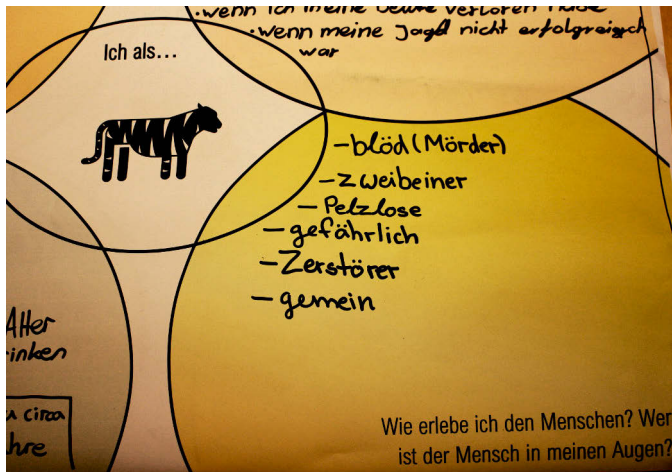 ·wenn ich meine Beute verloren habe
·wenn meine Jagd nicht erfolgreich
war
Ich als...
-blöd (Mörder)
-Zweibeiner
-Pelzlose
-gefährlich
-Zerstörer
-gemein
Alter
rinken
circa
hre
Wie erlebe ich den Menschen? Wer
ist der Mensch in meinen Augen?